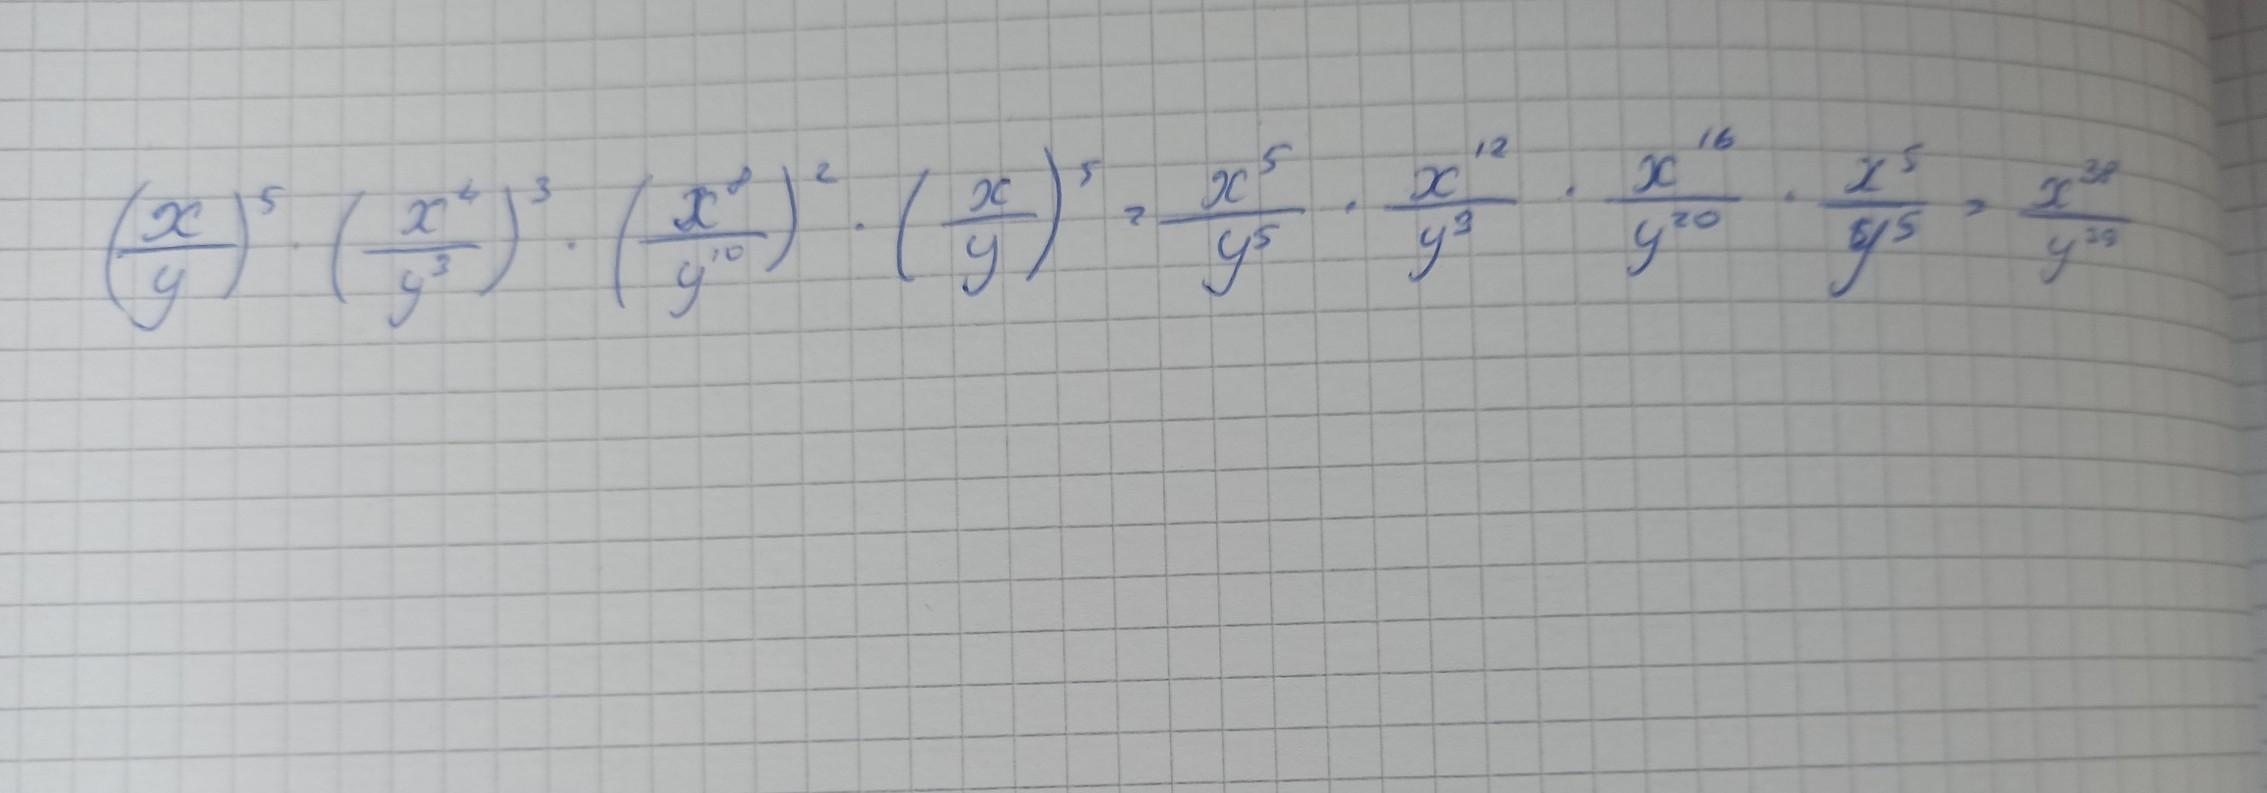 (x/y)^5 · (x^4/y^3)^3 · (x^8/y^10)^2 · (x/y)^5 = x^5/y^5 · x^12/y^3 · x^16/y^20 · x^5/y^5 = x^38/y^39